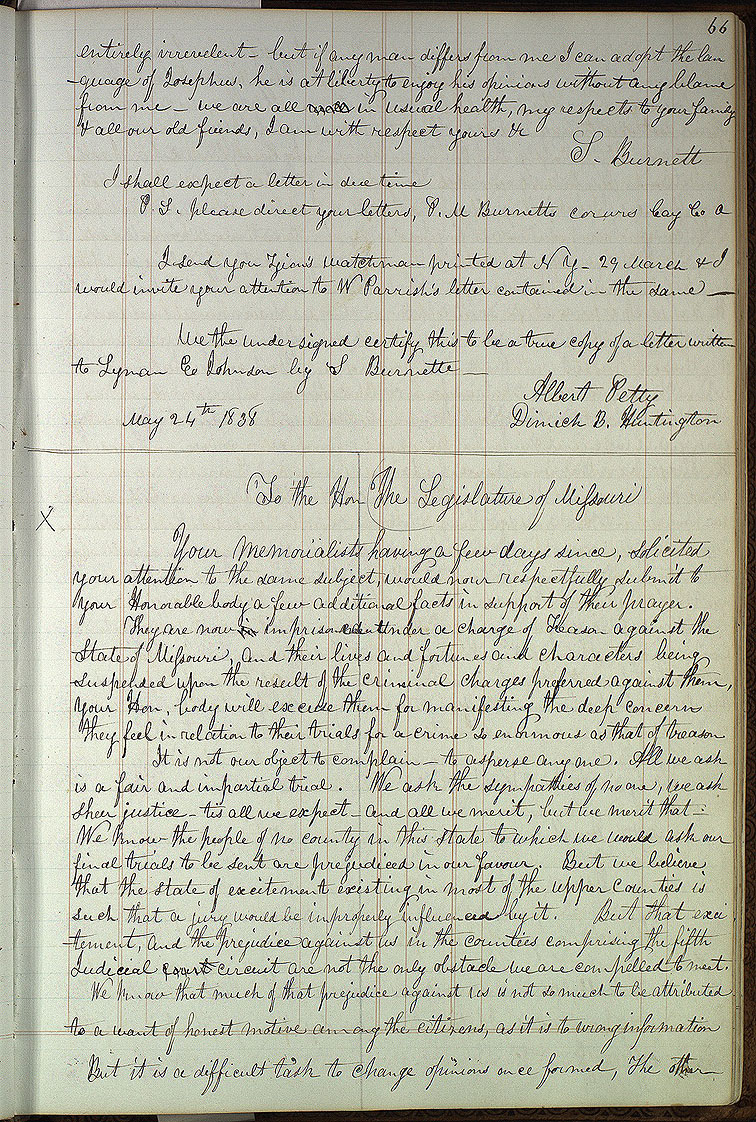 66
entirely irrevelent - but if any man differs from me I can adopt the lan
-guage of Josephus, he is at liberty to enjoy his opinions without any blame
from me - we are all in usual health, my respects to your family
& all our old friends, I am with respect yours &c
S. Burnett
I shall expect a letter in due time
P. S. please direct your letters, P. M Burnetts corurs Cay Co
I send you Zion's watchman printed at N Y - 29 March & I
would invite your attention to W Parrish's letter contained in the same —
We the undersigned certify this to be a true copy of a letter written
to Lyman E Johnson by S Burnette —
Albert Petty
May 24th 1838
Dimick B. Huntington
To the Hon The Legislature of Missouri
X
Your memorialists having a few days since, solicited
your attention to the same subject, would now respectfully submit to
your Honorable body a few additional facts in support of their prayer.
They are now imprisoned under a charge of Treason against the
State of Missouri, and their lives and fortunes and characters being
suspended upon the result of the criminal charges preferred against them,
your Hon, body will excuse them for manifesting the deep concern
they feel in relation to their trials for a crime so enormous as that of treason
It is not our object to complain - to asperse any one. All we ask
is a fair and impartial trial. We ask the sympathies of no one, we ask
sheer justice - tis all we expect - and all we merit, but we merit that -
We know the people of no county in this State to which we would ask our
final trials to be sent are prejudiced in our favour. But we believe
that the state of excitement existing in most of the upper counties is
such that a jury would be improperly influenced by it. But that exci
-tement, and the prejudice against us in the counties comprising the fifth
Judicial court circuit are not the only obstacle we are compelled to meet.
We know that much of that prejudice against us is not so much to be attributed
to a want of honest motive among the citizens, as it is to wrong information
But it is a difficult task to change opinions once formed, The other